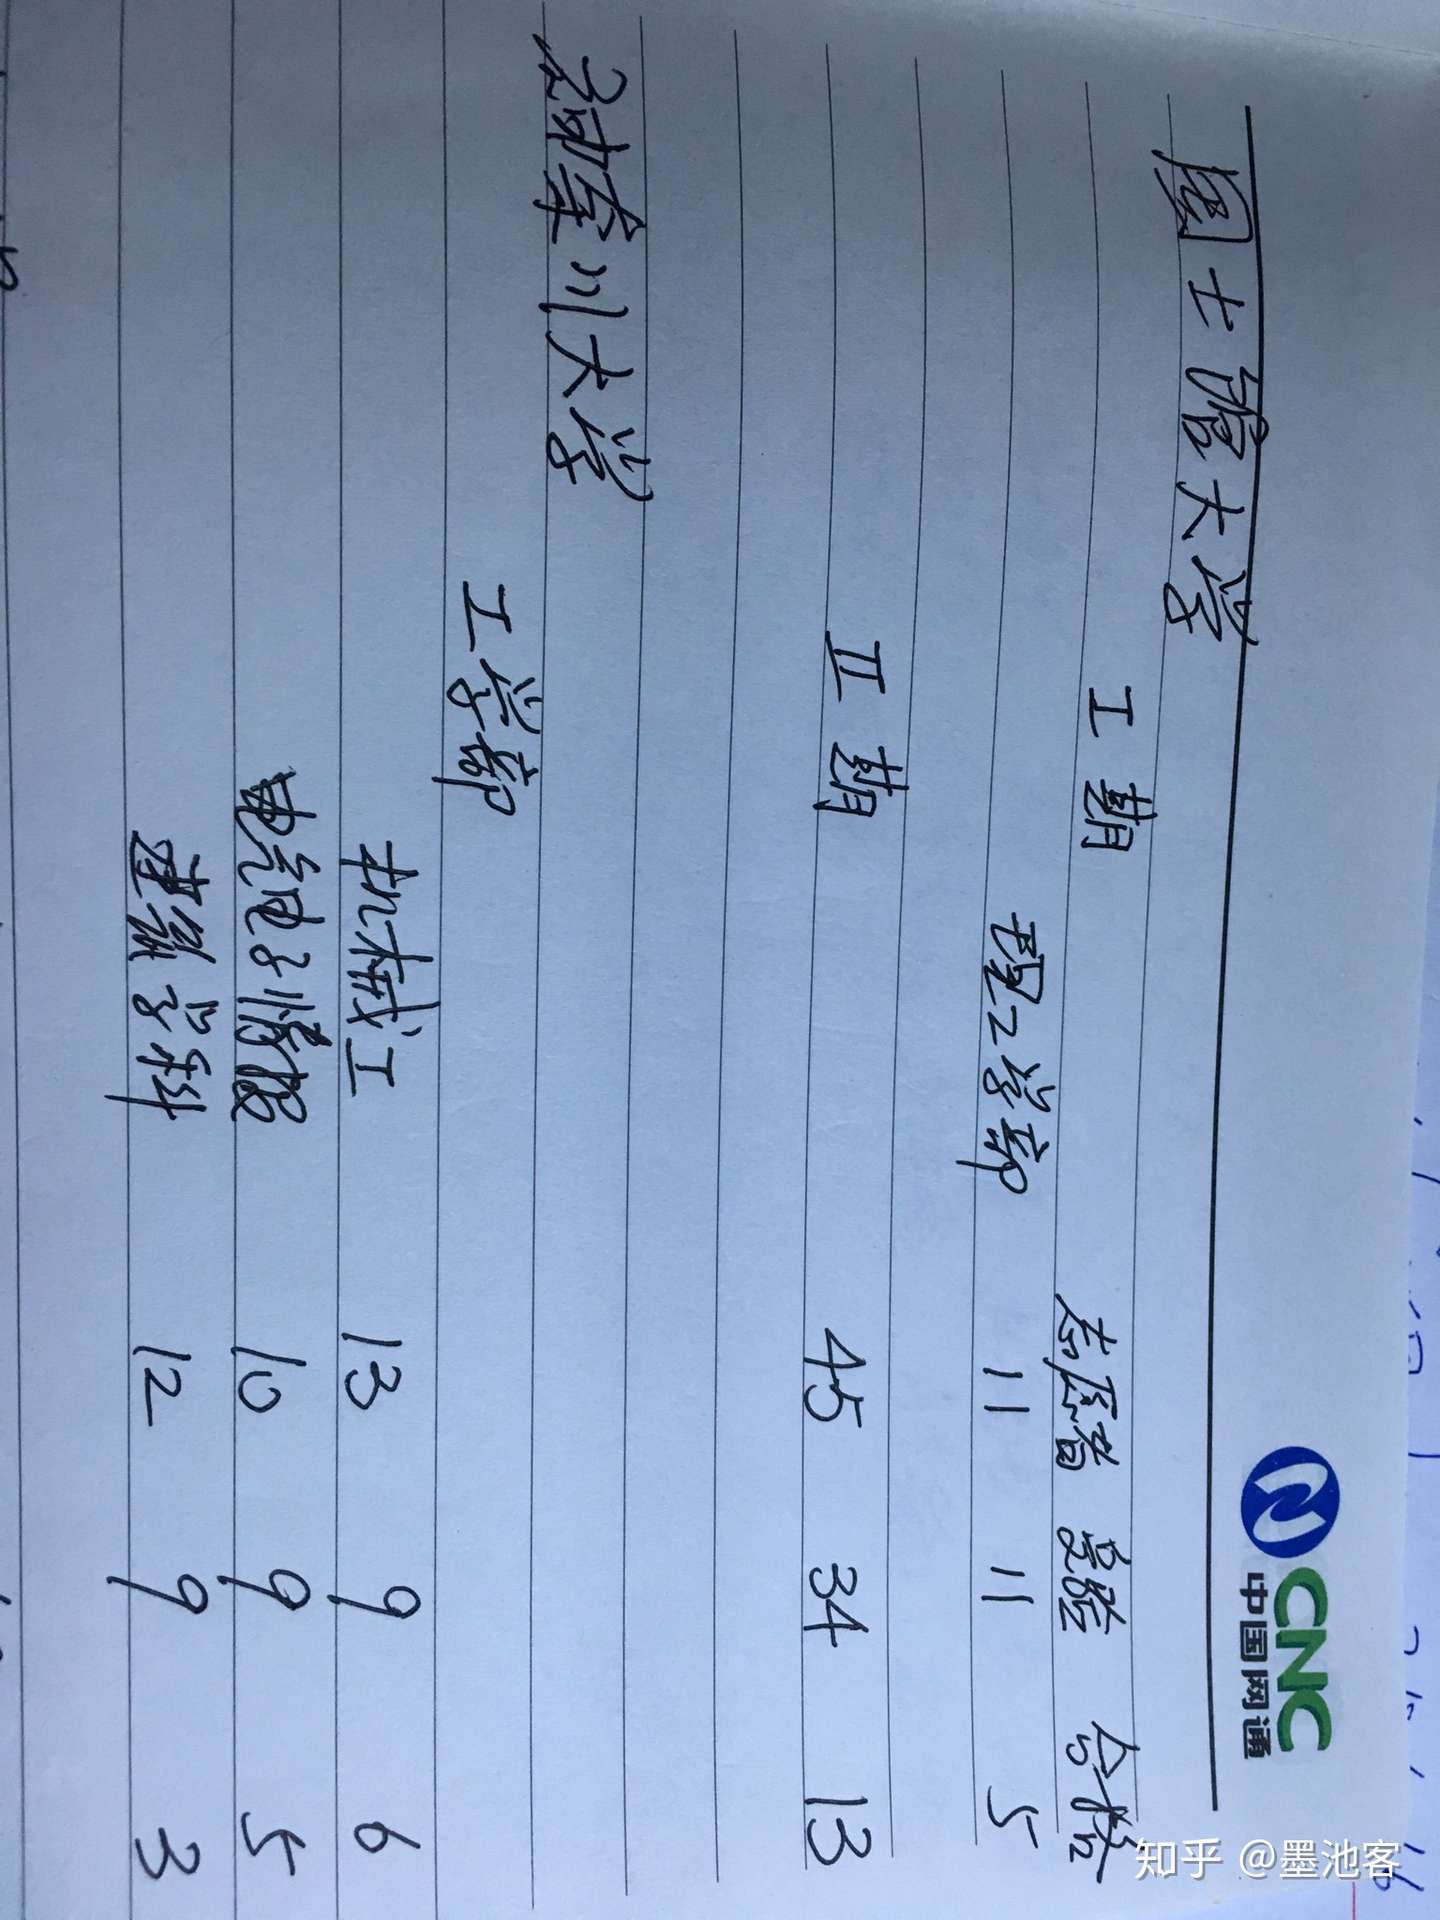 CNC
中国网通
国士馆大学
I期 志愿者 受验 合格
理工学部 11 11 5
II期 45 34 13
神奈川大学
工学部
机械工 13 9 6
电气电子情报 10 9 5
建筑学科 12 9 3
知乎 @墨池客